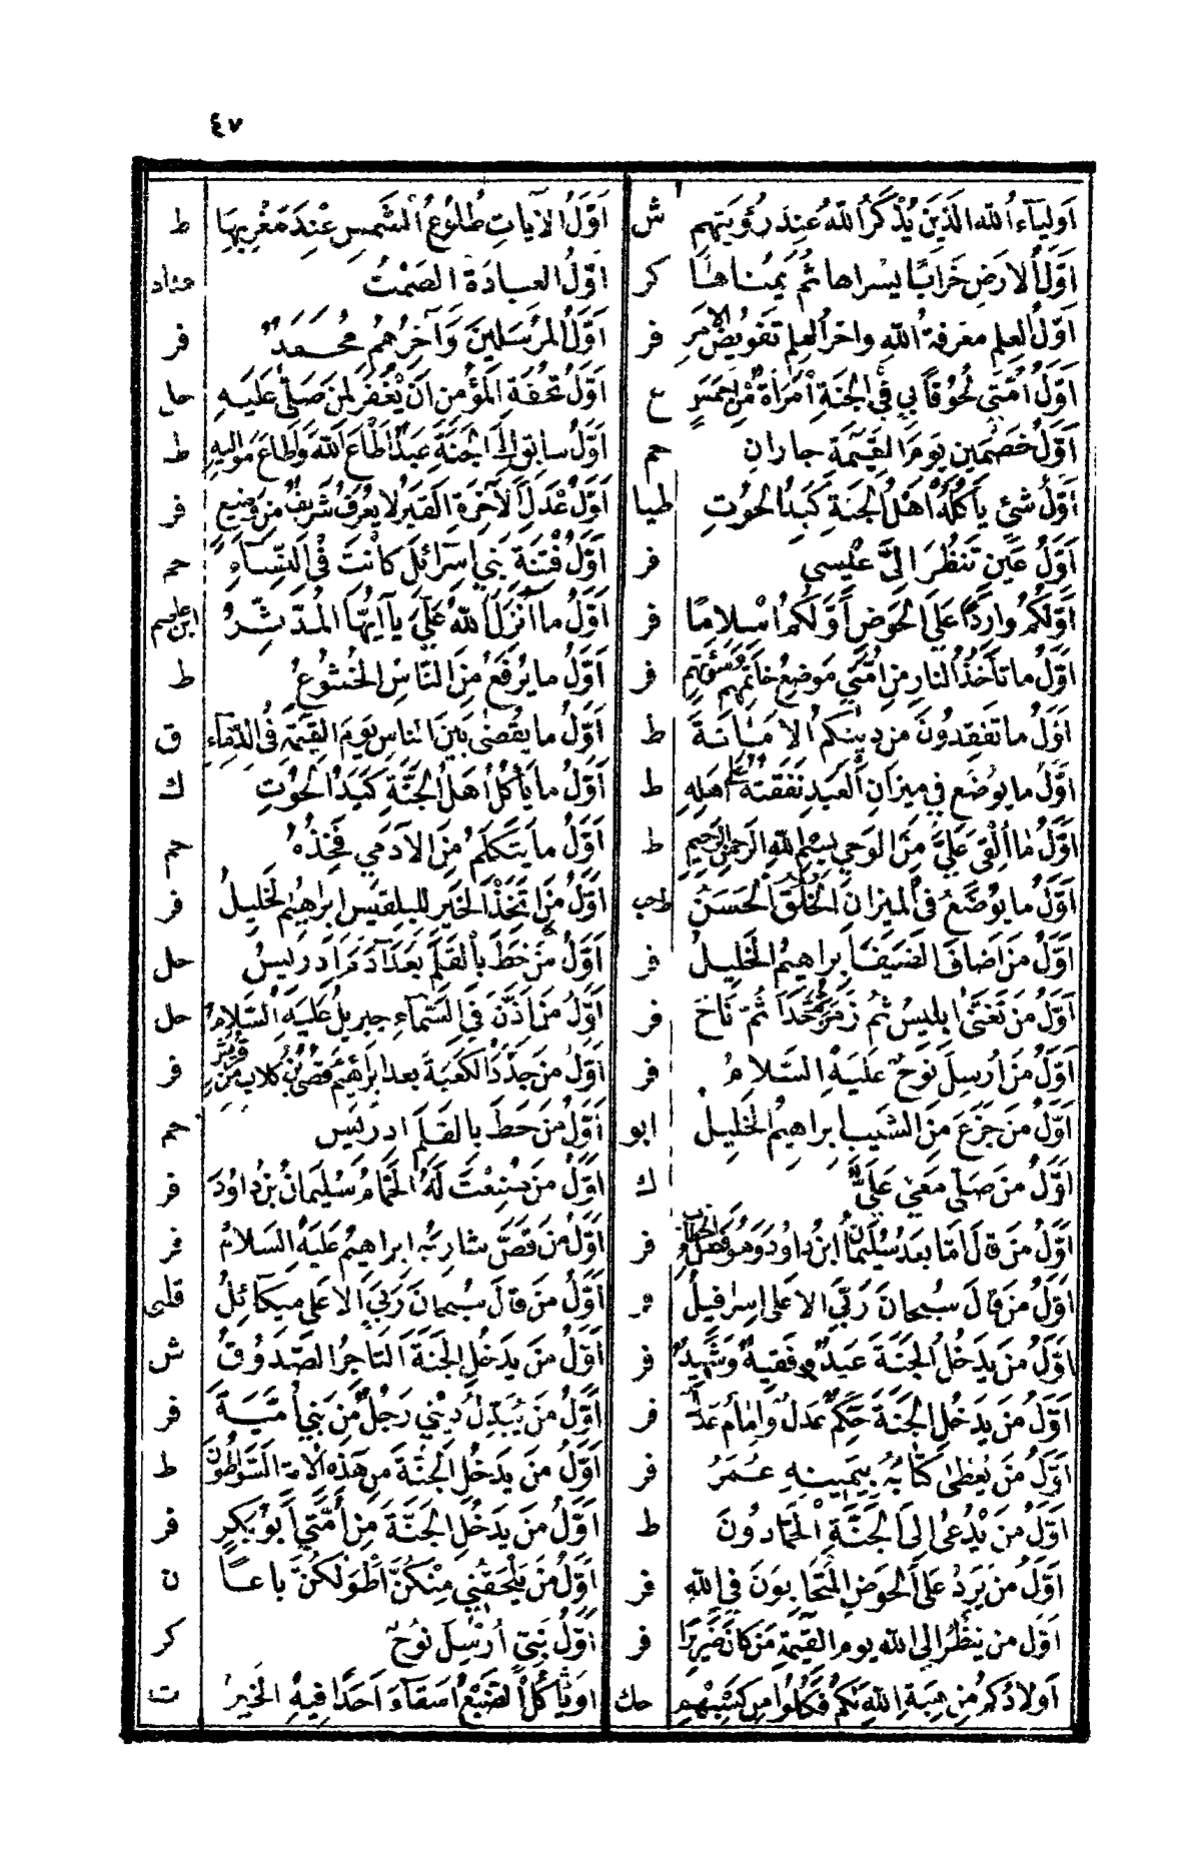 ٤٧
اَوليَآءُ الله الّذَينَ يُذْكَرُ اللّٰهُ عِندَ رُؤيَتِهِم ش
اَوّلُ الارَضِ خَرَابًا يسْراها ثمّ يمُناها كر
اَوّلُ العِلمِ مَعرفةُ اللّٰهِ واخرُ العِلم تَفوِيضُ الامرِ فر
اَوّلُ اُمّتي لحُوُقاً بي في الجَنّةِ اَمرَاةٌ مِن اَحمَسَ ع
اَوّلُ خَصْمَينِ يَومَ القِيٰمَةِ جارانِ حم
اَوّلُ شئٍ يأكُلهُ اَهْلُ الجَنّةِ كَبِدُ الحُوتِ طيا
اَوّلُ عَينٍ تَنظُرَ الىَّ عيْسي فر
اَوّلُكُم وارِدًا عَلَي الحَوضِ اَوّلكُم اسْلامًا فر
اَوّلُ ما تأخذُ النار مِن اُمّتي مَوضِعُ خاتمِهم وَسُرّتِهم فر
اَوّلُ ما تَفقِدُونَ مِن دِينِكم الاَمَانَةَ ط
اَوّلُ ما يوُضَع في ميزانِ العَبدِ نَفَقتهُ علي اَهلِهِ ط
اَوّلُ مَا اُلْقيَ عَلَيَّ مِنَ الوَحي بسْمِ اللّٰهِ الرَحمٰنِ الرَحِيمِ ط
اَوّلُ ما يوُضَعُ في الميزان الخُلُقُ الحَسَنُ طب
اَوّلُ مَن اَضافَ الضَيفَ اِبراهِيمُ الخَلِيلُ فر
اَوّلُ مَن تَغَنّىٰ اِبليسُ ثمّ زَمَرَ ثمّ حَدَا ثمّ نَاحَ فر
اَوّلُ مَن اُرسِلَ نوُحٌ عَليَهِ السَلامُ فر
اَوّلُ مَن جَزَعَ مِنَ الشَيبِ اِبراهِيمُ الخَلِيلُ ابو
اَوّلُ مَن صَلّى مَعيَ عَليٌّ ك
اَوّلُ مَن قالَ اَمّا بعَد سُليمانُ ابنُ داودَ وَهُوَ فصَلُ الخِطابِ فر
اَوّلُ مَن قالَ سُبحانَ رَبّيَ الاَعلى اِسرافيلُ فر
اَوّلُ مَن يَدخُلُ الجَنّةَ عَبدٌ وَفقيهٌ وَشَهِيدٌ فر
اَوّلُ مَن يَدخُلُ الجَنةَ حَكمٌ عَدلٌ وَاِمامٌ عَدلٌ فر
اَوّلُ مَن يُعْطىٰ كتَابَهُ بيَمِينِهِ عُمَرُ فر
اَوّلُ مَن يُدْعىٰ اِلي الجَنّةِ الحَمّادوُنَ ط
اَوّلُ مَن يَرِدُ عَلَى الحَوضِ المُتَحابّوُنَ فِي اللّٰهِ فر
اَوّل مَن يَنظُرُ اِلي اللّٰه يوم القِيٰمةِ مَن كانَ ضَرِيرًا فر
اَولادُكم مِن هِبَةِ اللّٰهِ لَكم فَكلُوا مِن كَسْبِهِم حك
اَوّلُ الآيَاتِ طُلوُعُ الشَمسِ عِنْدَ مَغْرِبِهَا ط
اَوّلُ العِبادَةِ الصَمْتُ هناد
اَوّلُ المرُسَلينَ وَآخِرُهُم مُحَمدٌ فر
اَوّلُ تحُفَةِ المُؤمِنِ اَن يُغْفَرَ لمِنَ صَلّى عَلَيهِ حل
اَوّلُ سابِقٍ اِلى الجَنّةِ عَبدٌ اَطَاعَ اللّٰهَ وَاَطاعَ مَوالِيهِ ط
اَوّلُ عَدَلِ الآخِرَةِ القَبرُ لا يُعرَفُ شَرِيفٌ مِن وَضِيعٍ فر
اَوّلُ فِتْنَةِ بَني اِسرَائلَ كانَت في النِّسَآءِ حم
اَوّلُ ما اُنزِلَ اللّٰهُ عَلَيَّ يا اَيُهَا المُدّثِّرُ
اَوّلُ ما يُرفَعُ مِنَ النّاسِ الخُشُوعُ ط
اَوّلُ ما يُقضىٰ بَينَ الناسِ يَومَ القِيٰمَةِ فى الدِّمآءِ ق
اَوّلُ ما يَأكلُ اَهَلُ الجَنَّةِ كَبَدُ الحُوتِ ك
اَوّلُ ما يَتَكلمُ مِنَ الآدَمي فَخِذُهُ حم
اَوّلُ مَن اتخَذَ الخبز البلقس ابرٰهيمُ الخَليلُ فر
اَوّلُ مَن خطّ بالقَلَمِ بعَدَ آدَمَ اِدرِيسُ حل
اَوّلُ مَن اَذّنَ فِي السَمآءِ جبريلُ عَليَهِ السَلامُ حل
اَوّلُ مَن جَدّدَ الكَعبَةَ بعد اِبرَاهِيمَ قصَيُّ بنُ كلابٍ مِن قُرَيشٍ فر
اَوّلُ مَن خَطّ بالقَلَمِ ادرِيس حم
اَوّلُ مَن صُنِعْتَ لَهُ الحَمّامُ سُليمَانُ بنُ داودَ فر
اَوّلُ مَن قَصّ شارِبَهُ اِبراهيمُ عَليَهِ السَلامُ فر
اَوّلُ مَن قالَ سُبحانَ رَبّيَ الاَعلى ميكائِلُ
اَوّلُ مَن يَدخُلُ الجَنّةَ التاجرُ الصَدوُقُ ش
اَوّلُ مَن يُبَدّلُ ديْني رَجُلٌ مِن بَني اُمَيّةَ فر
اَوّلُ مَن يَدخُل الجَنّةَ مِن هَذِه الامة السَوّاطوُنَ ط
اَوّلُ مَن يَدخُلُ الجَنّةَ مِن اُمّتي اَبوُ بَكرٍ فر
اَوّلُ مَن يَلحَقُني مِنْكنَّ اَطْوَلكُنَّ باعًا ن
اَوّلُ نَبيّ اُرْسِلَ نُوحٌ كر
اَوَ يأكُلُ الضَبُعَ اَحَدًا فيهِ الخَيرُ ت